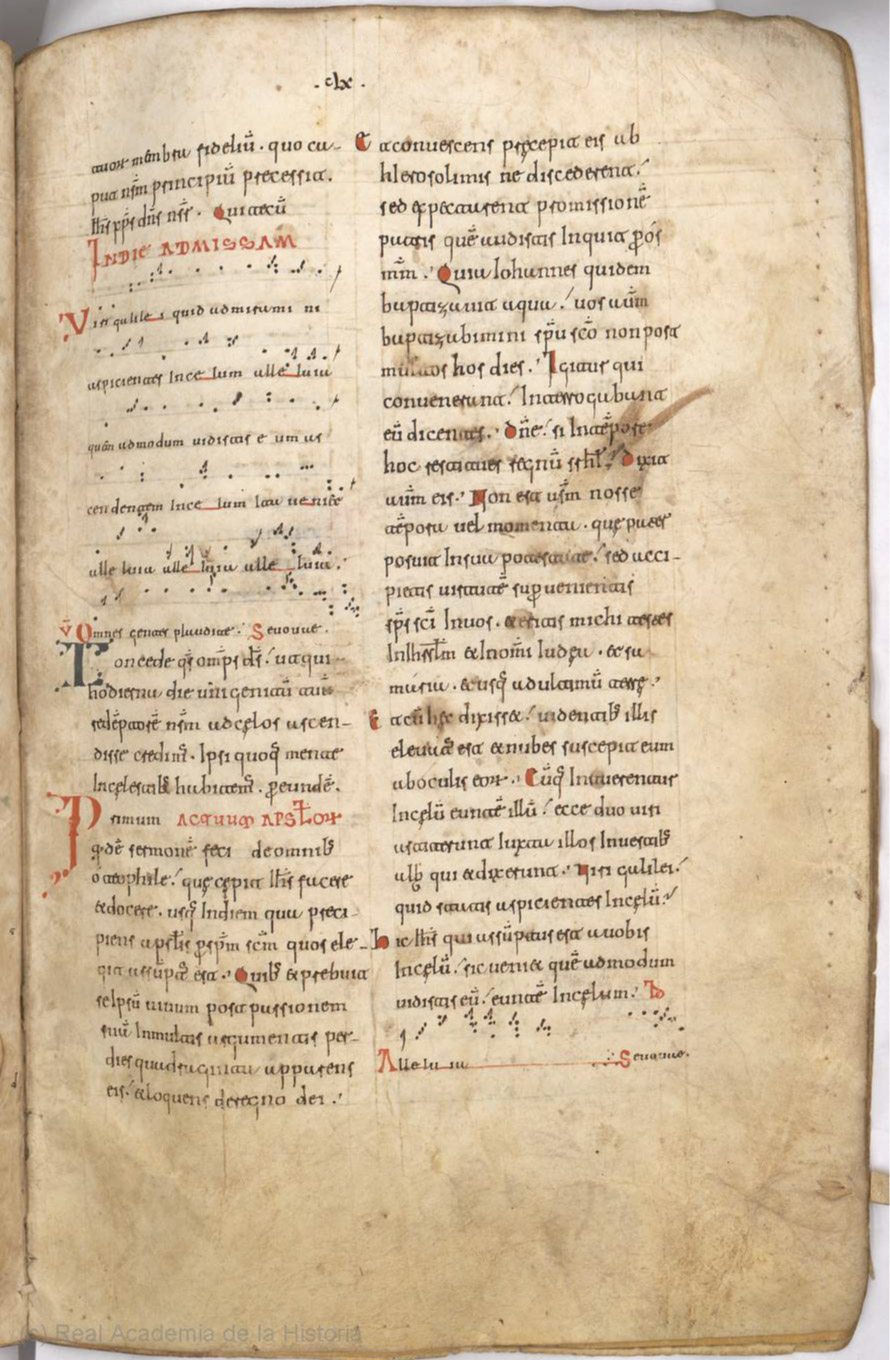 ·clx·
tuoꝝ mēnbra fideliū · quo ca-
put nr̄m principiū precessit.
Ihs xp̄s dn̄s nr̄. Qui tecū
IN DIE AD MISSAM
Viri galile i quid admirami ni
aspicientes In ce lum alle luia
quēm admodum uidistis e um as
cendentem In ce lum Ita ueniet
alle luia alle luia alle luia.
V̄ Omnes gentes plaudite. Seuouae.
Concede qs̄ omp̄s ds̄. ut qui
hodierna die unigenitū tuū
redēptorē nr̄m ad cęlos ascen-
disse credimꝰ. Ipsi quoq; mente
In cęlestib; habitemꝰ. ꝑ eundē.
Primum ACTUUM APSTLOꝝ
qͥdē sermonē feci de omnib;
o teophile. quę cepit Ihs facere
& docere. usq; In diem qua preci-
piens apstl̄is ꝑ sp̄m scm̄ quos ele-
git assūptꝰ est. Quib; & prebuit
seipsū uiuum post passionem
suā In multis argumentis per
dies quadraginta apparens
eis. & loquens de regno dei.
Et conuescens precepit eis ab
hIerosolimis ne discederent.
sed expectarent promissionē
patris quē audistis Inquit ꝑ os
mm̄. Quia Iohannes quidem
baptizauit aqua. uos autm̄
baptizabimini sp̄u sc̄o non post
multos hos dies. Igitur qui
conuenerunt. Interrogabant
eū dicentes. Dn̄e. si In tēpore
hoc restitues regnū isrhl̄. Dixit
autm̄ eis. Non est ur̄m nosse
tēpora uel momenta. que pater
posuit In sua potestate. sed acci-
pietis uirtutē superuenientis
sp̄s sc̄i In uos. & eritis michi testes
In Ihrs̄lm & In omī Iudęa. & sa
maria. & usq; ad ultimū terrę.
Et cū hec dixiss&. uidentib; illis
eleuatꝰ est & nubes suscepit eum
ab oculis eoꝝ. Cūq; Intuerentur
In cęlū euntē illū. ecce duo uiri
astiterunt Iuxta illos In uestib;
alb̄ qui & dixerunt. Uiri galilei.
quid statis aspicientes In cęlū.
hic Ihs qui assūptus est a uobis
In cęlū. sic ueni& quē admodum
uidistis eū. euntē In cęlum.
Alle lu ia Seuouae.
(c) Real Academia de la Historia